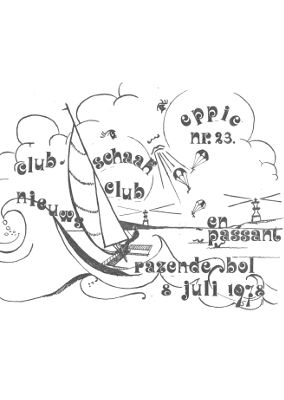 eppie
nr. 23.
club-
nieuws
schaak
club
en
passant
razende bol
8 juli 1978